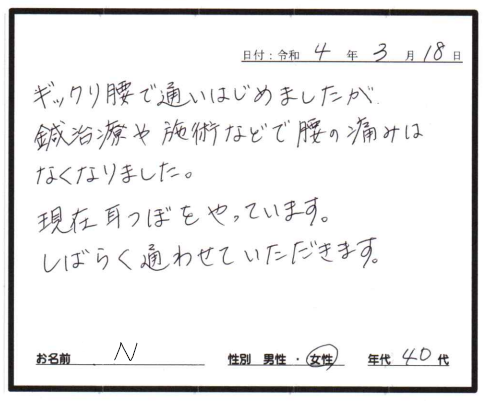 日付：令和 4 年 3 月 18 日
ギックリ腰で通いはじめましたが、
鍼治療や施術などで腰の痛みは
なくなりました。
現在耳つぼをやっています。
しばらく通わせていただきます。
お名前 N 性別 男性・女性 年代 40代